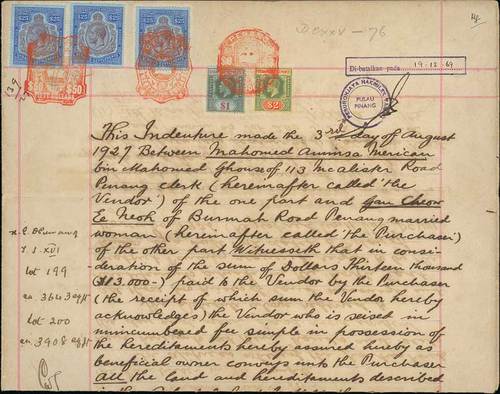 DCXXV - 76
$25 $25 $25
$50
$1 $2
Di-batalkan pada 19-12-69
PULAU
PINANG
This Indenture made the 3rd day of August
1927 Between Mahomed Merican
bin Mahomed Ghouse of 113 McAlister Road
Penang clerk (hereinafter called 'the
Vendor') of the one part and Gan Cheow
Ee Neoh of Burmah Road Penang married
woman (hereinafter called 'the Purchaser')
of the other part Witnesseth that in consi-
deration of the sum of Dollars Thirteen thousand
($13.000-) paid to the Vendor by the Purchaser
(the receipt of which sum the Vendor hereby
acknowledges) the Vendor who is seised in
unincumbered fee simple in possession of
the hereditaments hereby assured hereby as
beneficial owner conveys unto the Purchaser
All the land and hereditaments described
T.S. XIII
lot 199
ea 3643 sq ft
lot 200
ea 3908 sq ft